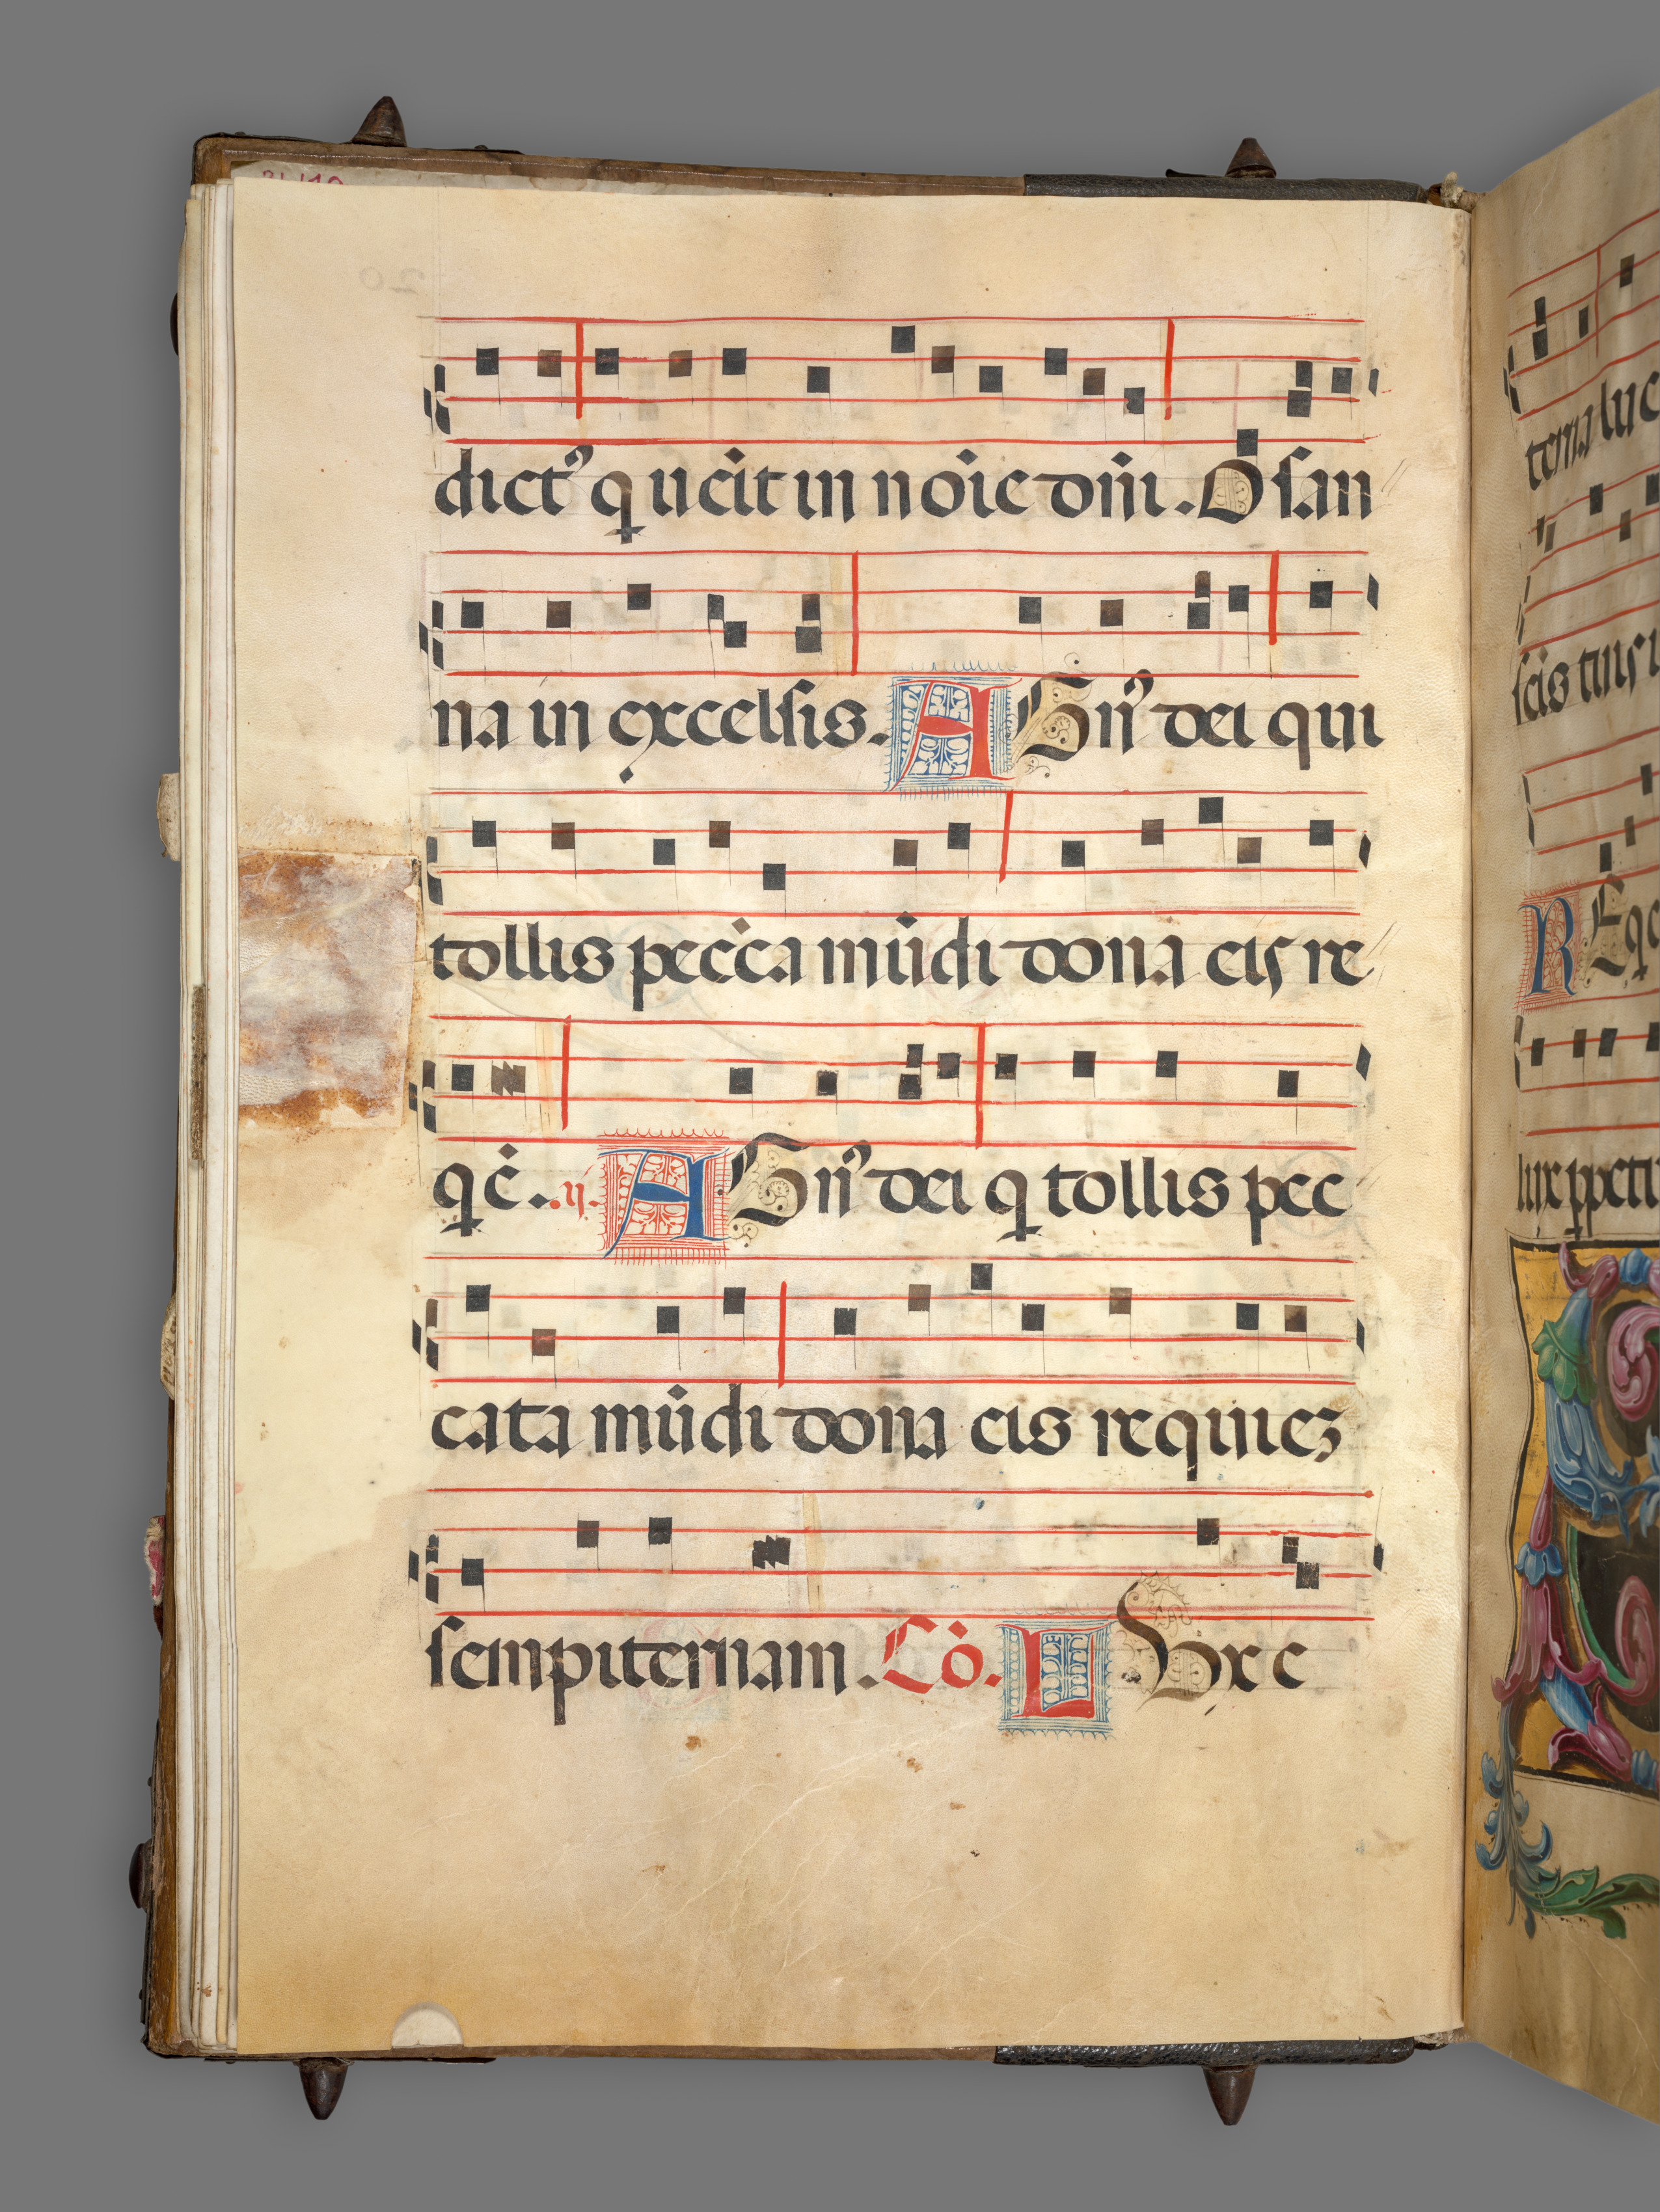 dict⁹ q uēit in nōie dn̄i. Osan
na in excelsis. AGn⁹ dei qui
tollis pecc̄a mūdi dona eis re
qē. .ij. AGn⁹ dei q tollis pec
cata mūdi dona eis requiez
sempiternam. Cō. LUx e
terna luc
scis tuis i
REqe
luxe ppetu